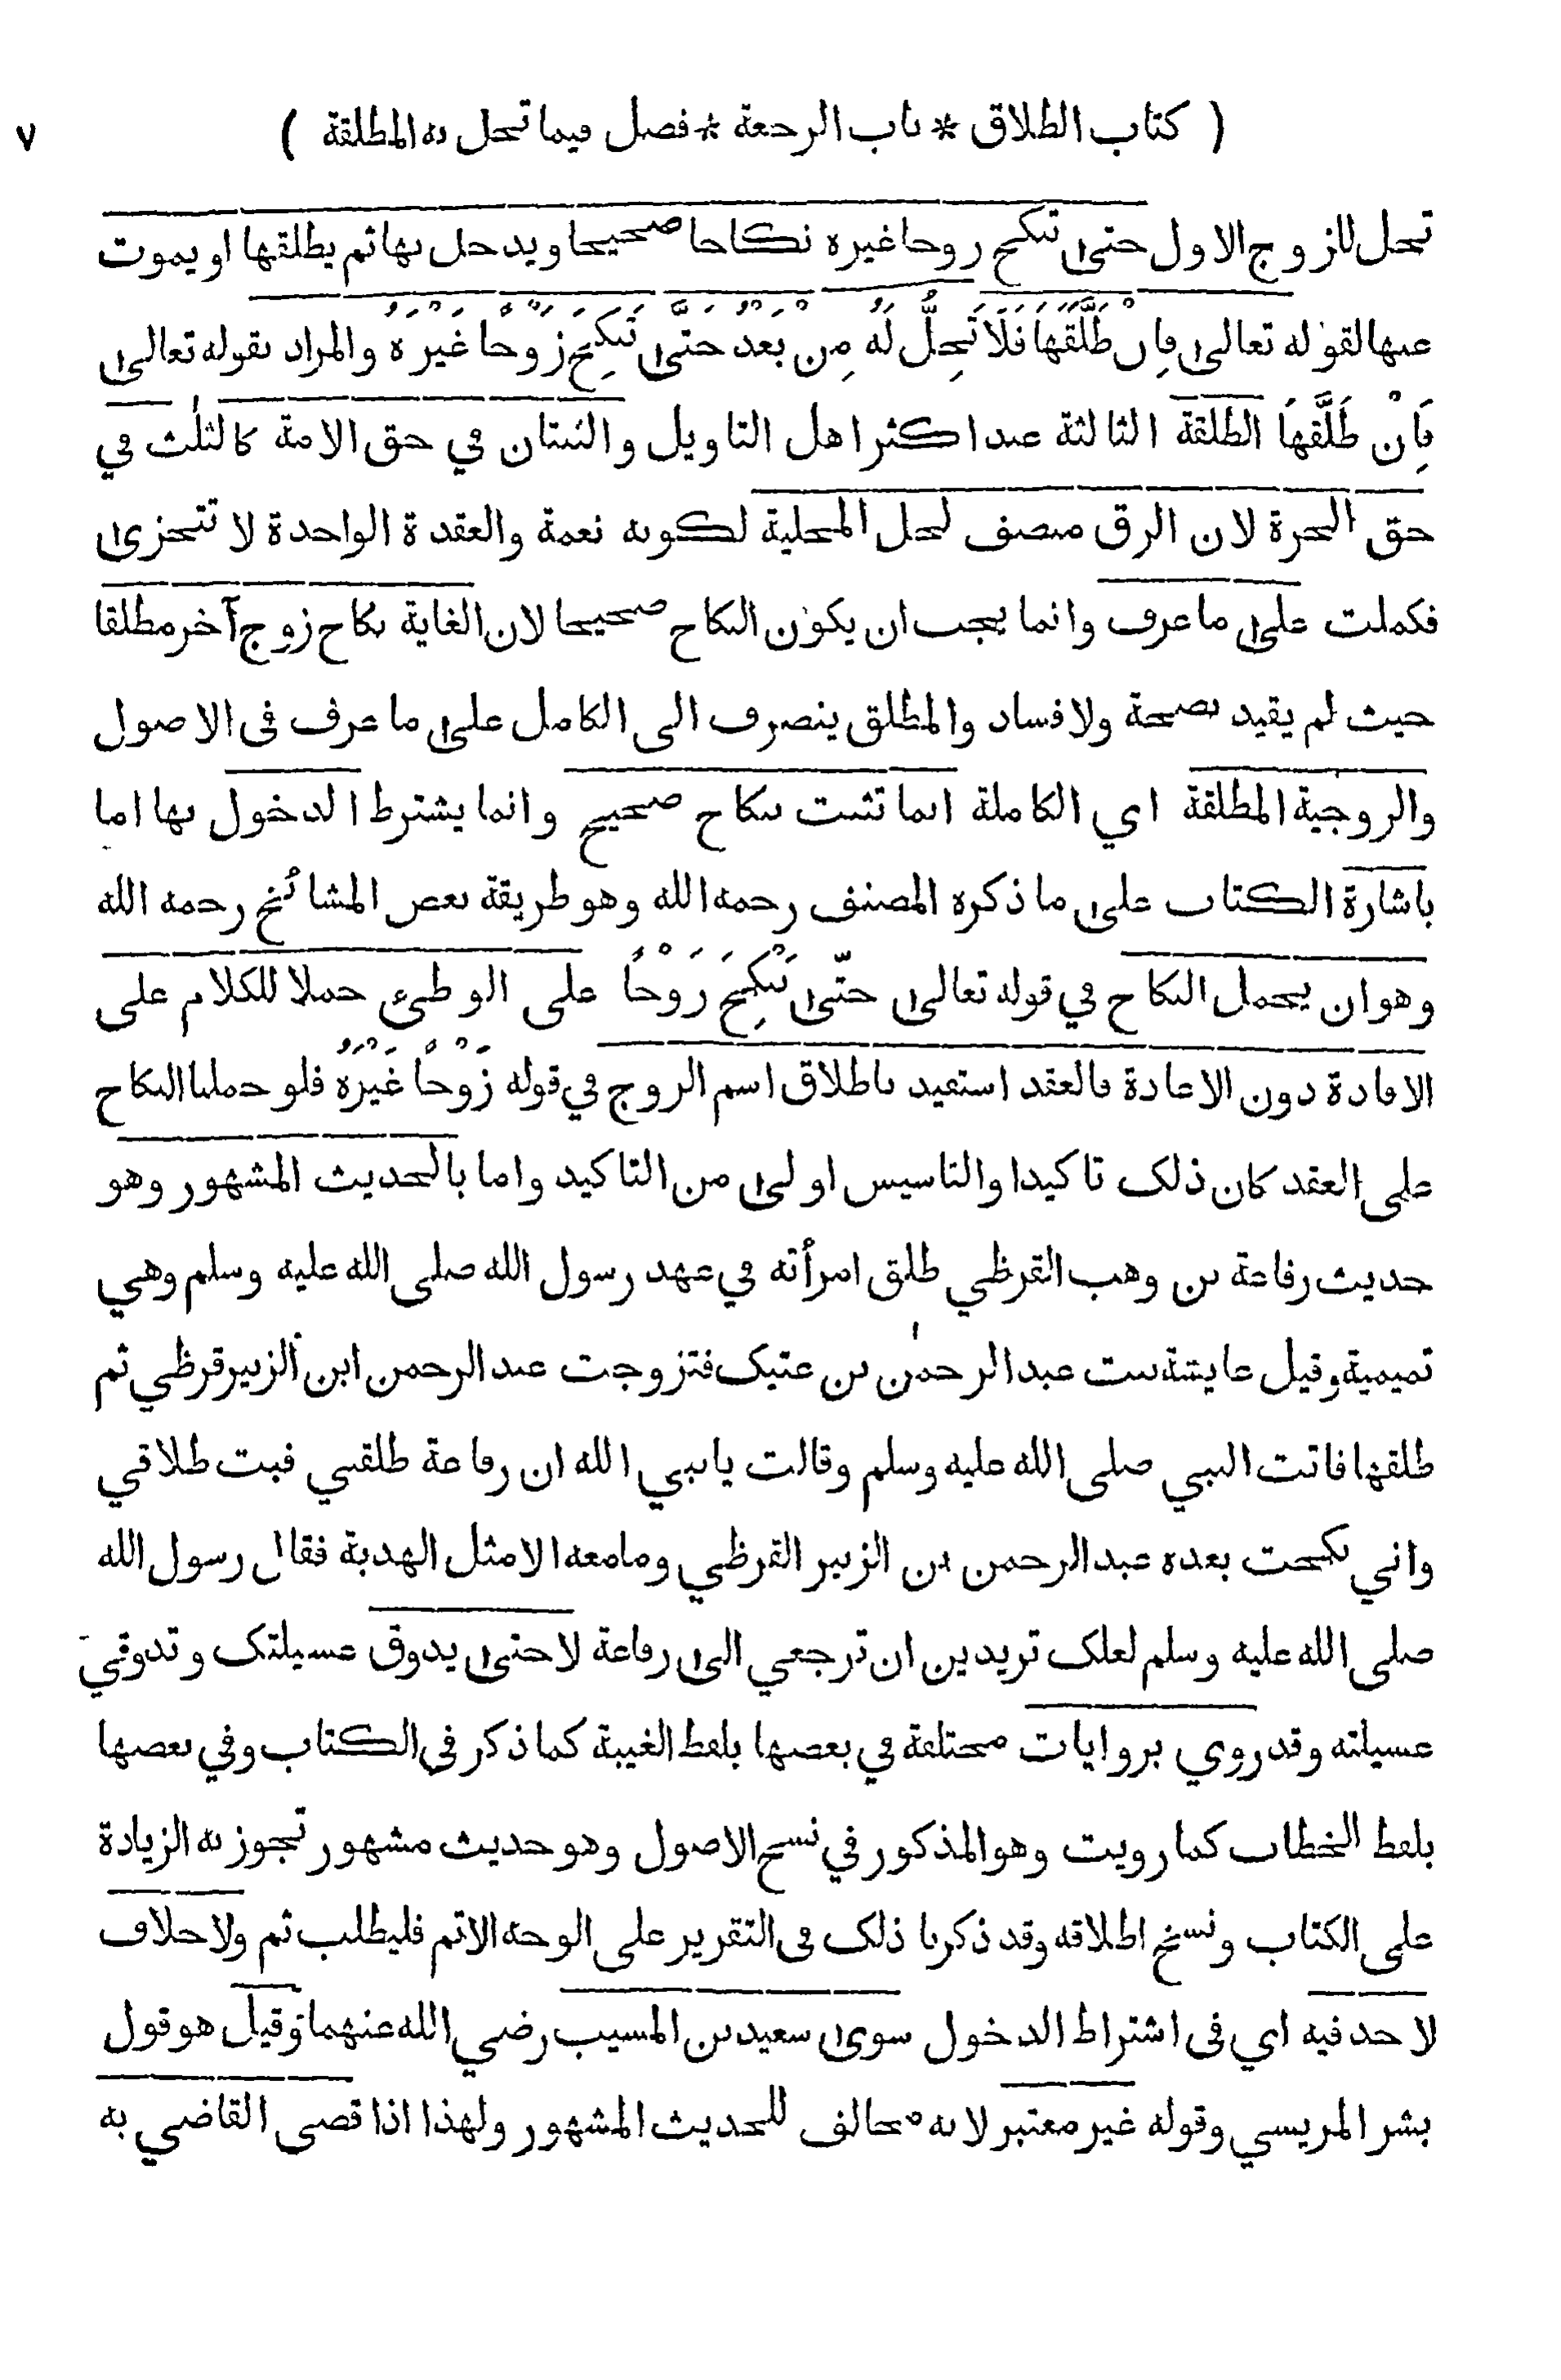 ( كتاب الطلاق * باب الرجعة * فصل فيما تحل به المطلقة ) ٧
تحل للزوج الاول حتى تنكح زوجا غيره نكاحا صحيحا ويدخل بها ثم يطلقها او يموت
عنها لقوله تعالى فان طَلَّقَهَا فَلَا تَحِلُّ لَهُ مِنْ بَعْدُ حَتَّى تَنْكِحَ زَوْجًا غَيْرَهُ والمراد بقوله تعالى
فَاِنْ طَلَّقَهَا الطلقة الثالثة عند اكثر اهل التاويل والثنتان في حق الامة كالثلث في
حق الحرة لان الرق منصف لحل المحلية لكونه نعمة والعقدة الواحدة لا تتجزى
فكملت على ما عرف وانما يجب ان يكون النكاح صحيحا لان الغاية نكاح زوج آخر مطلقا
حيث لم يقيد بصحة ولا فساد والمطلق ينصرف الى الكامل على ما عرف فى الاصول
والزوجية المطلقة اي الكاملة انما تثبت بنكاح صحيح وانما يشترط الدخول بها اما
باشارة الكتاب على ما ذكره المصنف رحمه الله وهو طريقة بعض المشائخ رحمه الله
وهو ان يحمل النكاح في قوله تعالى حَتَّى تَنْكِحَ زَوْجًا على الوطئ حملا للكلام على
الافادة دون الاعادة فالعقد استفيد باطلاق اسم الزوج في قوله زَوْجًا غَيْرَهُ فلو حملنا النكاح
على العقد كان ذلك تاكيدا والتاسيس اولى من التاكيد واما بالحديث المشهور وهو
حديث رفاعة بن وهب القرظي طلق امرأته في عهد رسول الله صلى الله عليه وسلم وهي
تميمية وقيل عايشة بنت عبد الرحمن بن عتيك فتزوجت عبد الرحمن ابن الزبير قرظي ثم
طلقها فاتت النبي صلى الله عليه وسلم وقالت يا نبي الله ان رفاعة طلقني فبت طلاقي
واني نكحت بعده عبد الرحمن بن الزبير القرظي وما معه الا مثل الهدبة فقال رسول الله
صلى الله عليه وسلم لعلك تريدين ان ترجعي الى رفاعة لا حتى يذوق عسيلتك وتذوقي
عسيلته وقد روي بروايات مختلفة في بعضها بلفظ الغيبة كما ذكر فى الكتاب وفي بعضها
بلفظ الخطاب كما رويت وهو المذكور في نسخ الاصول وهو حديث مشهور تجوز به الزيادة
على الكتاب ونسخ اطلاقه وقد ذكرنا ذلك فى التقرير على الوجه الاتم فليطلب ثم ولا خلاف
لا حد فيه اي فى اشتراط الدخول سوى سعيد بن المسيب رضي الله عنهما وقيل هو قول
بشر المريسي وقوله غير معتبر لانه مخالف للحديث المشهور ولهذا اذا قضى القاضي به